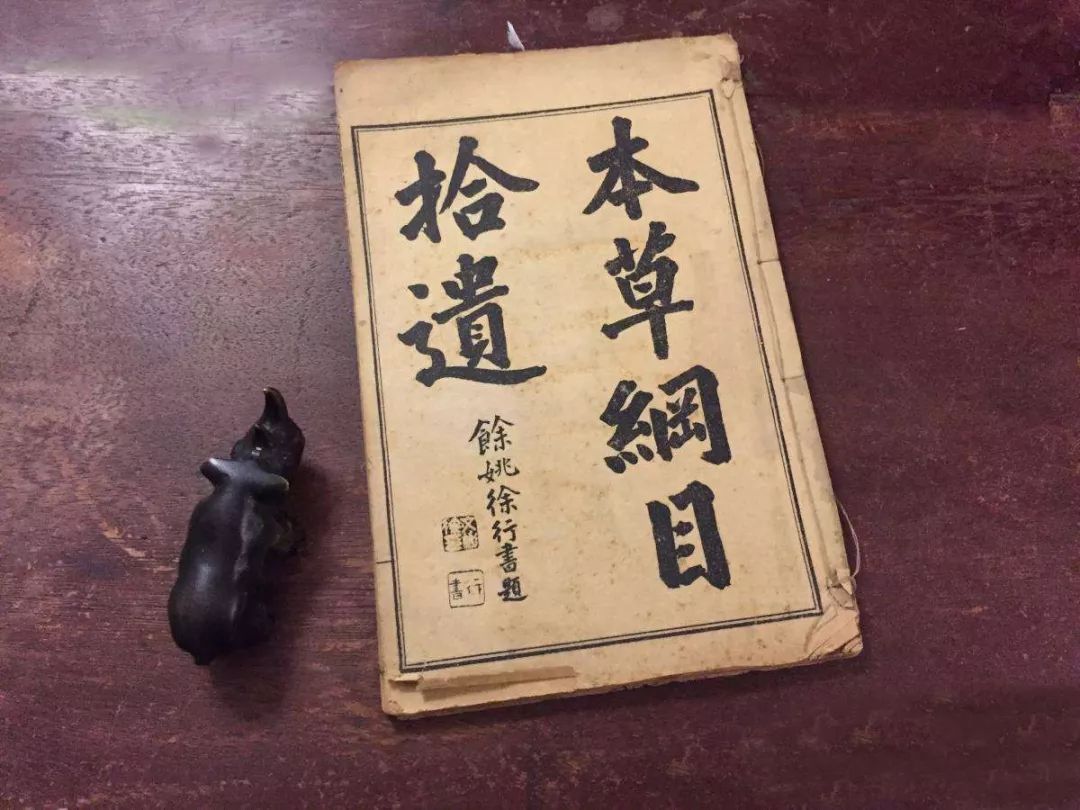 本草綱目
拾遺
餘姚徐行書題
行書